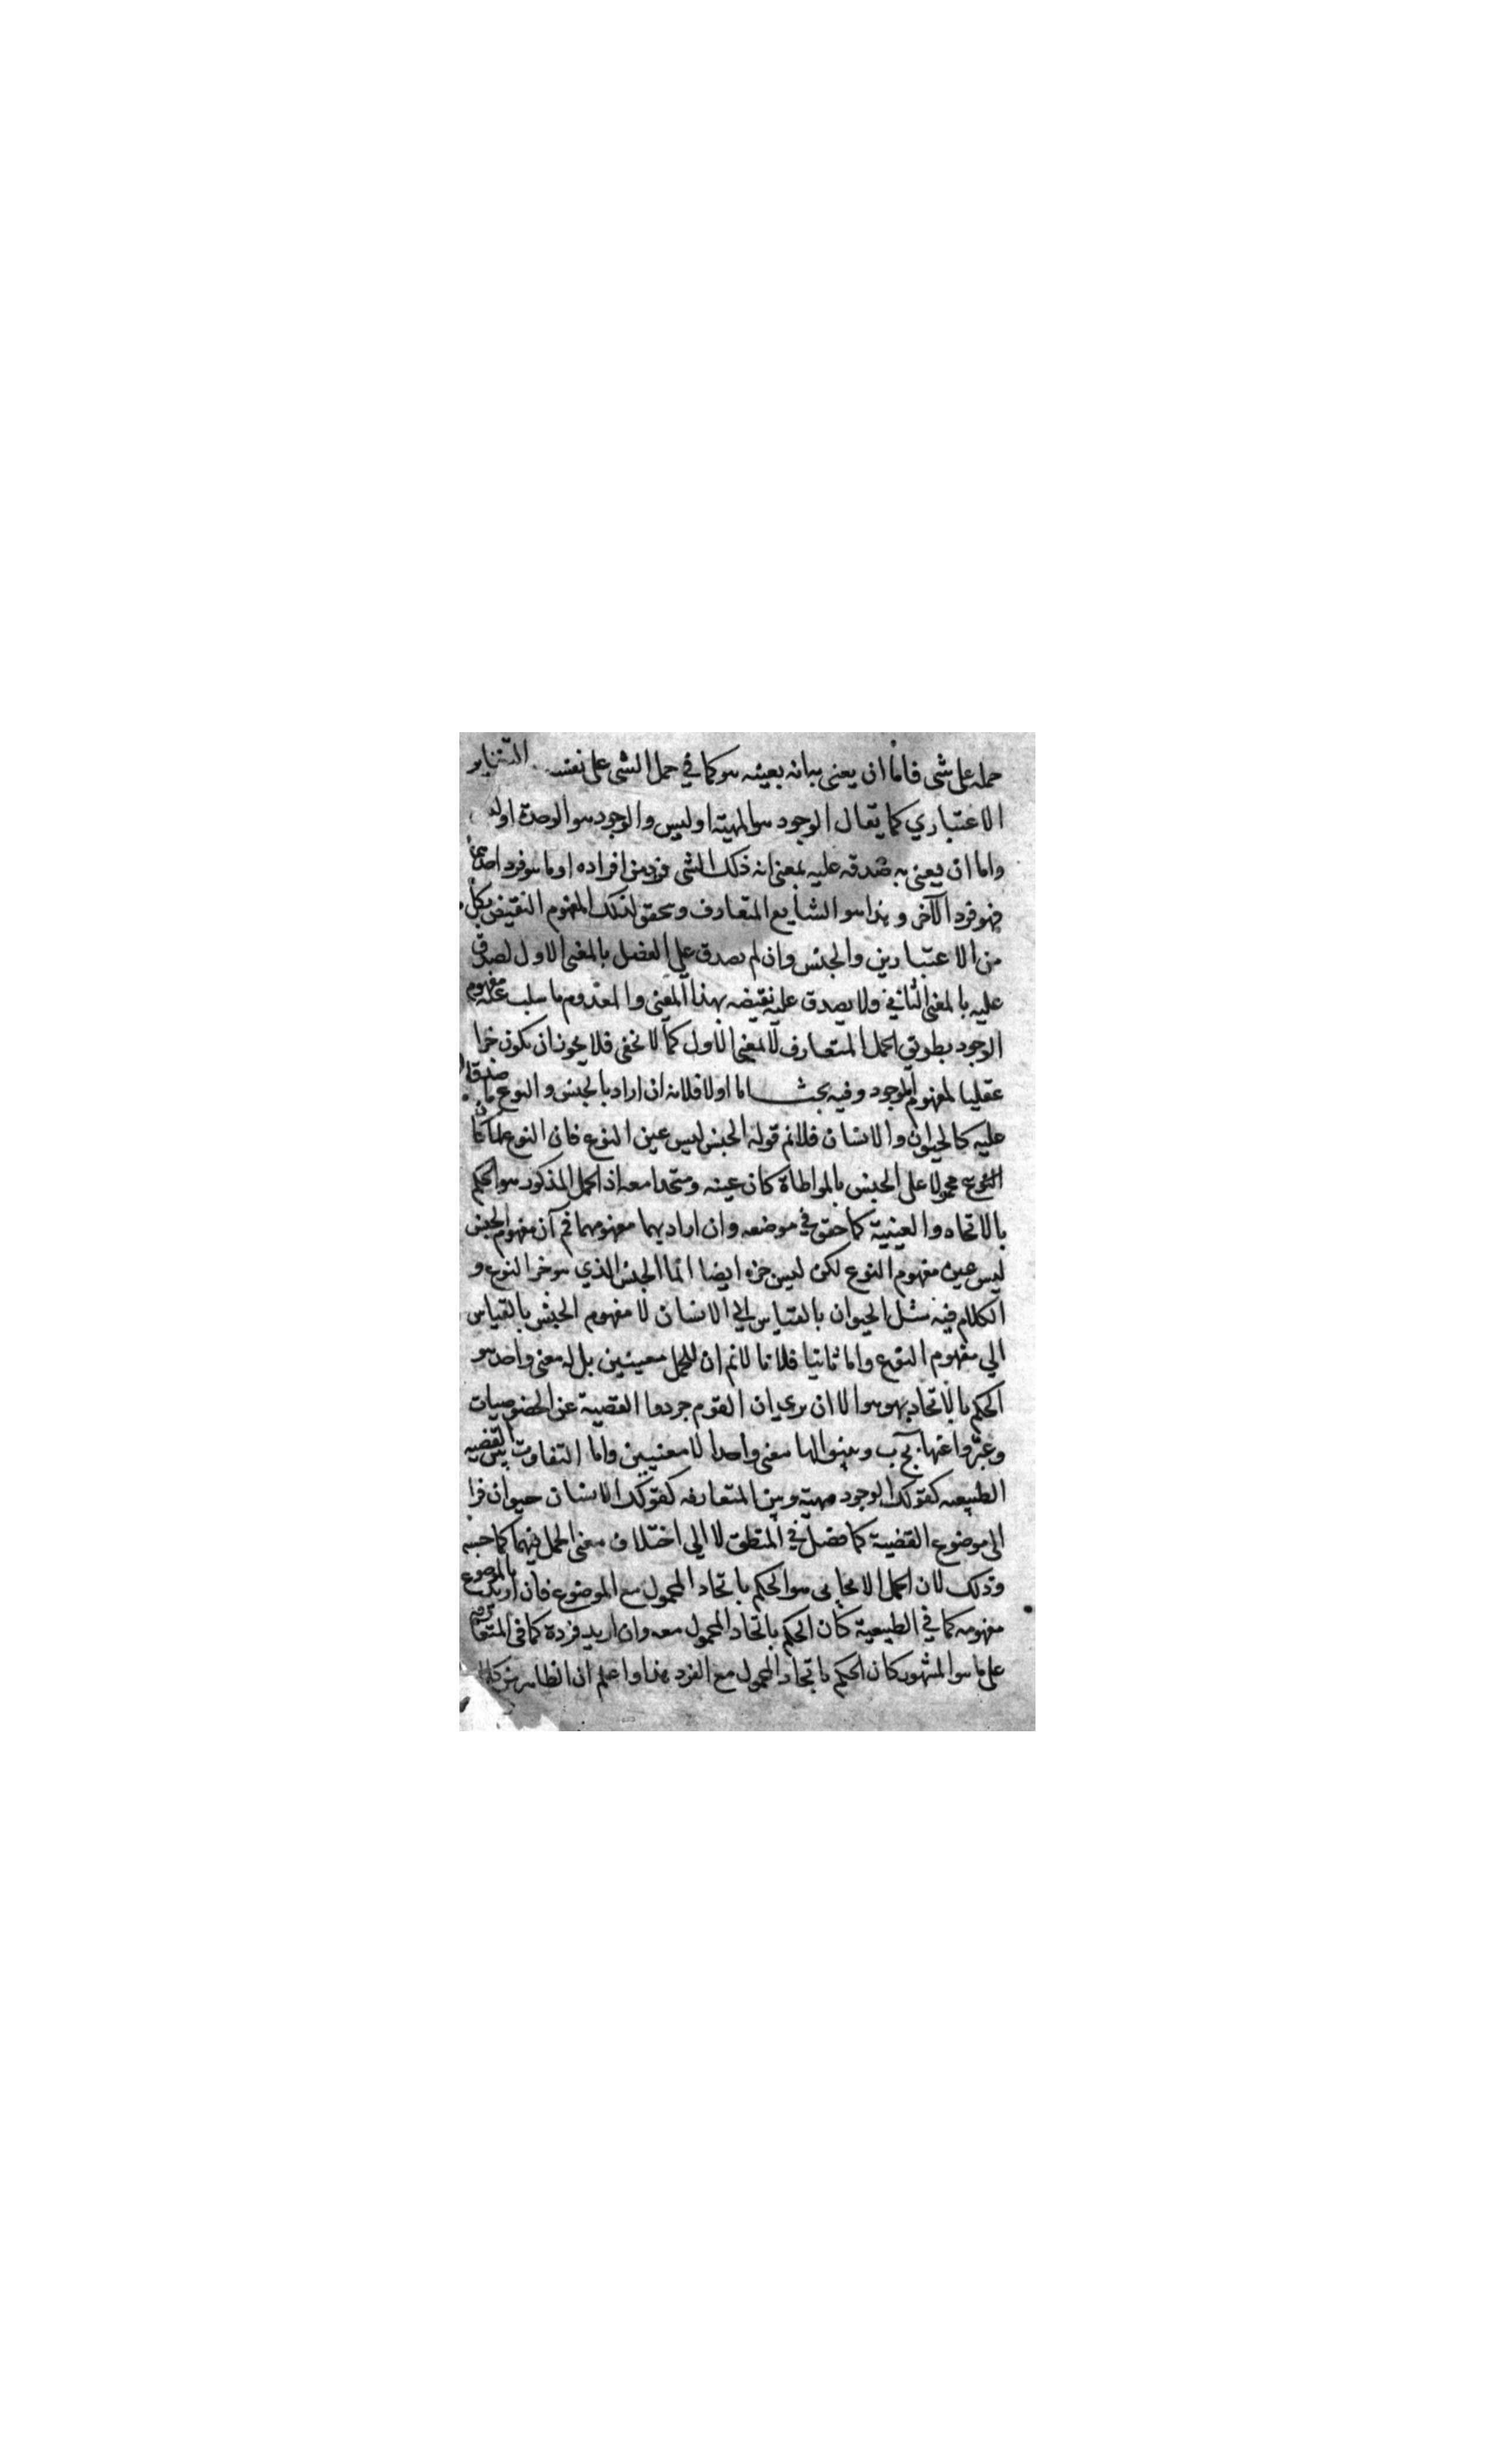 حمله على شى فاما ان يعنى به انه بعينه هو كما في حمل الشى على نفسه التغاير
الاعتباري كما يقال الوجود هو المهية او ليس والوجود هو الوحدة او
واما ان يعنى به صدقه عليه بمعنى انه ذلك الشى فرد من افراده او ما هو فرد احدهما
فهو فرد الآخر وهذا هو الشايع المتعارف وتحقق لذلك المفهوم النقيض بكل
من الاعتبارين والجنس وان لم يصدق على الفصل بالمعنى الاول لصدق
عليه بالمعنى الثاني ولا يصدق عليه نقيضه بهذا المعنى والمعدوم ما سلب عنه مفهوم
الوجود بطريق الحمل المتعارف لا المعنى الاول كما لا نخفى فلا يجوز ان يكون جزا
عقليا لمفهوم الموجود وفيه بحث اما اولا فلانه ان اراد بالجنس والنوع ما صدقا
عليه كالحيوان والانسان فلانم قوله الجنس ليس عين النوع فان النوع لما كان
النوع محمولا على الجنس بالمواطاة كان عينه ومتحدا معه اذ الحمل المذكور هو الحكم
بالاتحاد والعينية كما حقق في موضعه وان اراد بهما مفهومهما فم آن مفهوم الجنس
ليس عين مفهوم النوع لكن ليس جزه ايضا انما الجنس الذي هو جز النوع و
الكلام فيه مثل الحيوان بالقياس الي الانسان لا مفهوم الجنس بالقياس
الي مفهوم النوع واما ثانيا فلانا لانم ان للحمل معنيين بل له معنى واحد هو
الحكم بالاتحاد بهو هو الا ان يرى ان القوم جردوا القضية عن الخصوصيات
وعبروا عنها بج ب وبينوا لها معنى واحدا لا معنيين واما التفاوت بين القضيه
الطبيعيه كقولك الوجود مهية وبين المتعارفه كقولك الانسان حيوان
الى موضوع القضية كما فصل في المنطق لا الي اختلاف معنى الحمل فيهما كما حسبه
وذلك لان الحمل الايجابى هو الحكم باتحاد المحمول مع الموضوع فان اريد بالموضوع
مفهومه كما في الطبيعية كان الحكم باتحاد المحمول معه وان اريد فرده كما فى المتعارفه
على ما هو المشهور كان الحكم باتحاد المحمول مع الفرد هذا واعلم ان الظاهر من